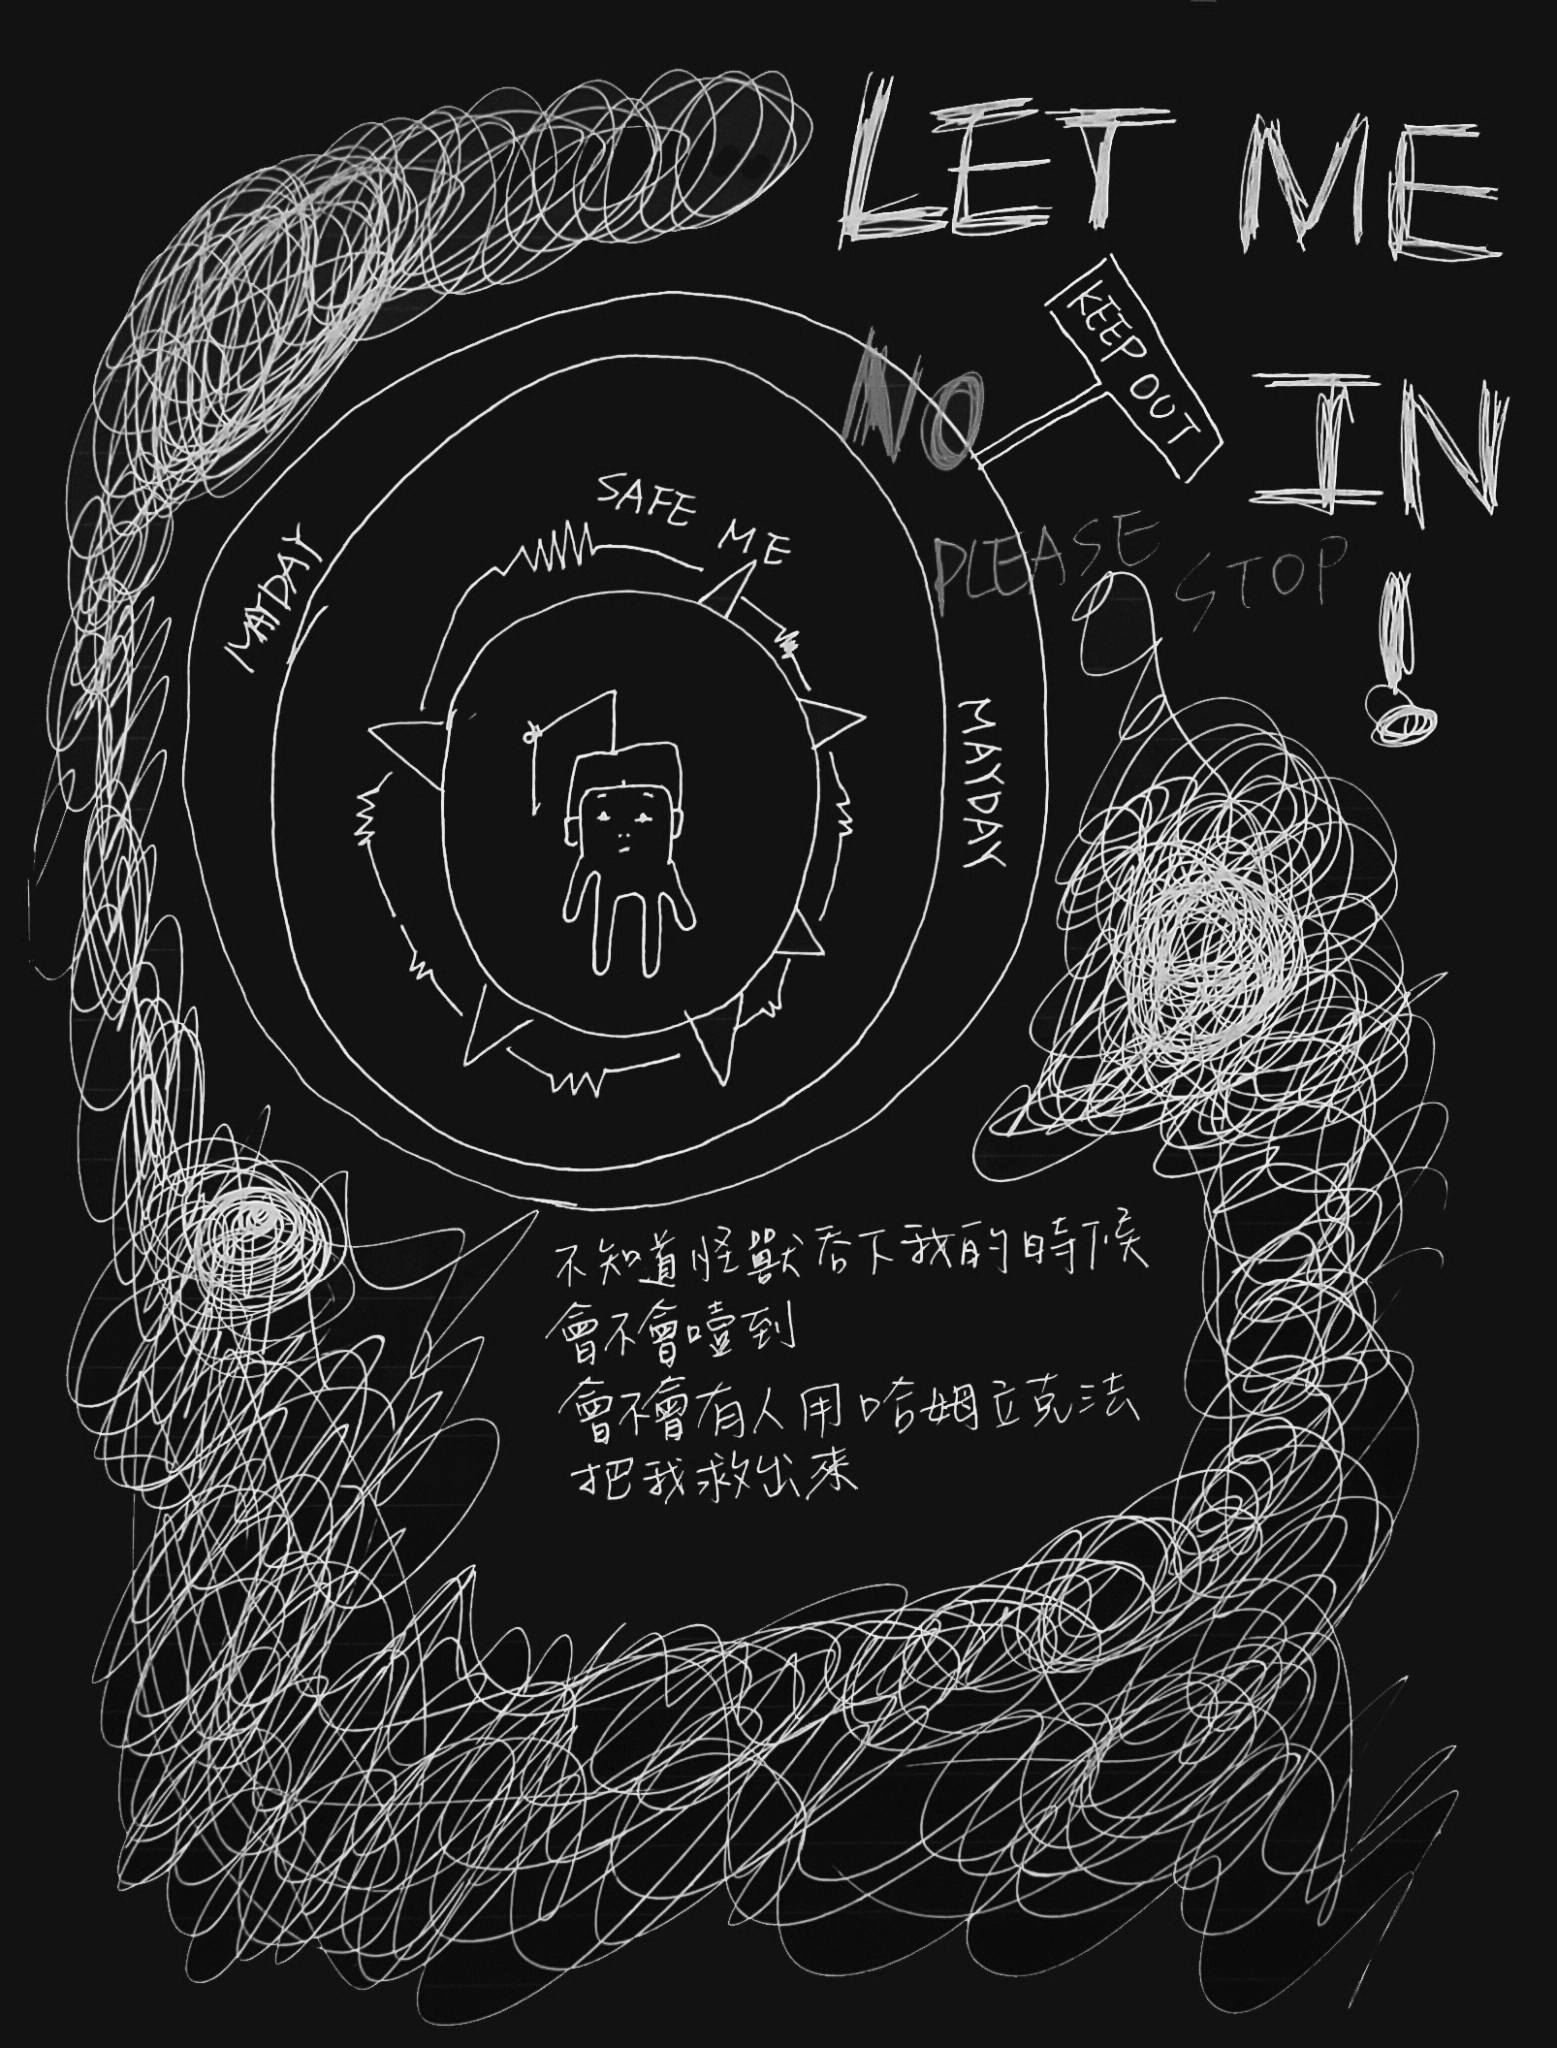 LET ME
IN!
KEEP OUT
NO
PLEASE STOP
SAFE ME
MAYDAY
MAYDAY
不知道怪獸吞下我的時候
會不會噎到
會不會有人用哈姆立克法
把我救出來